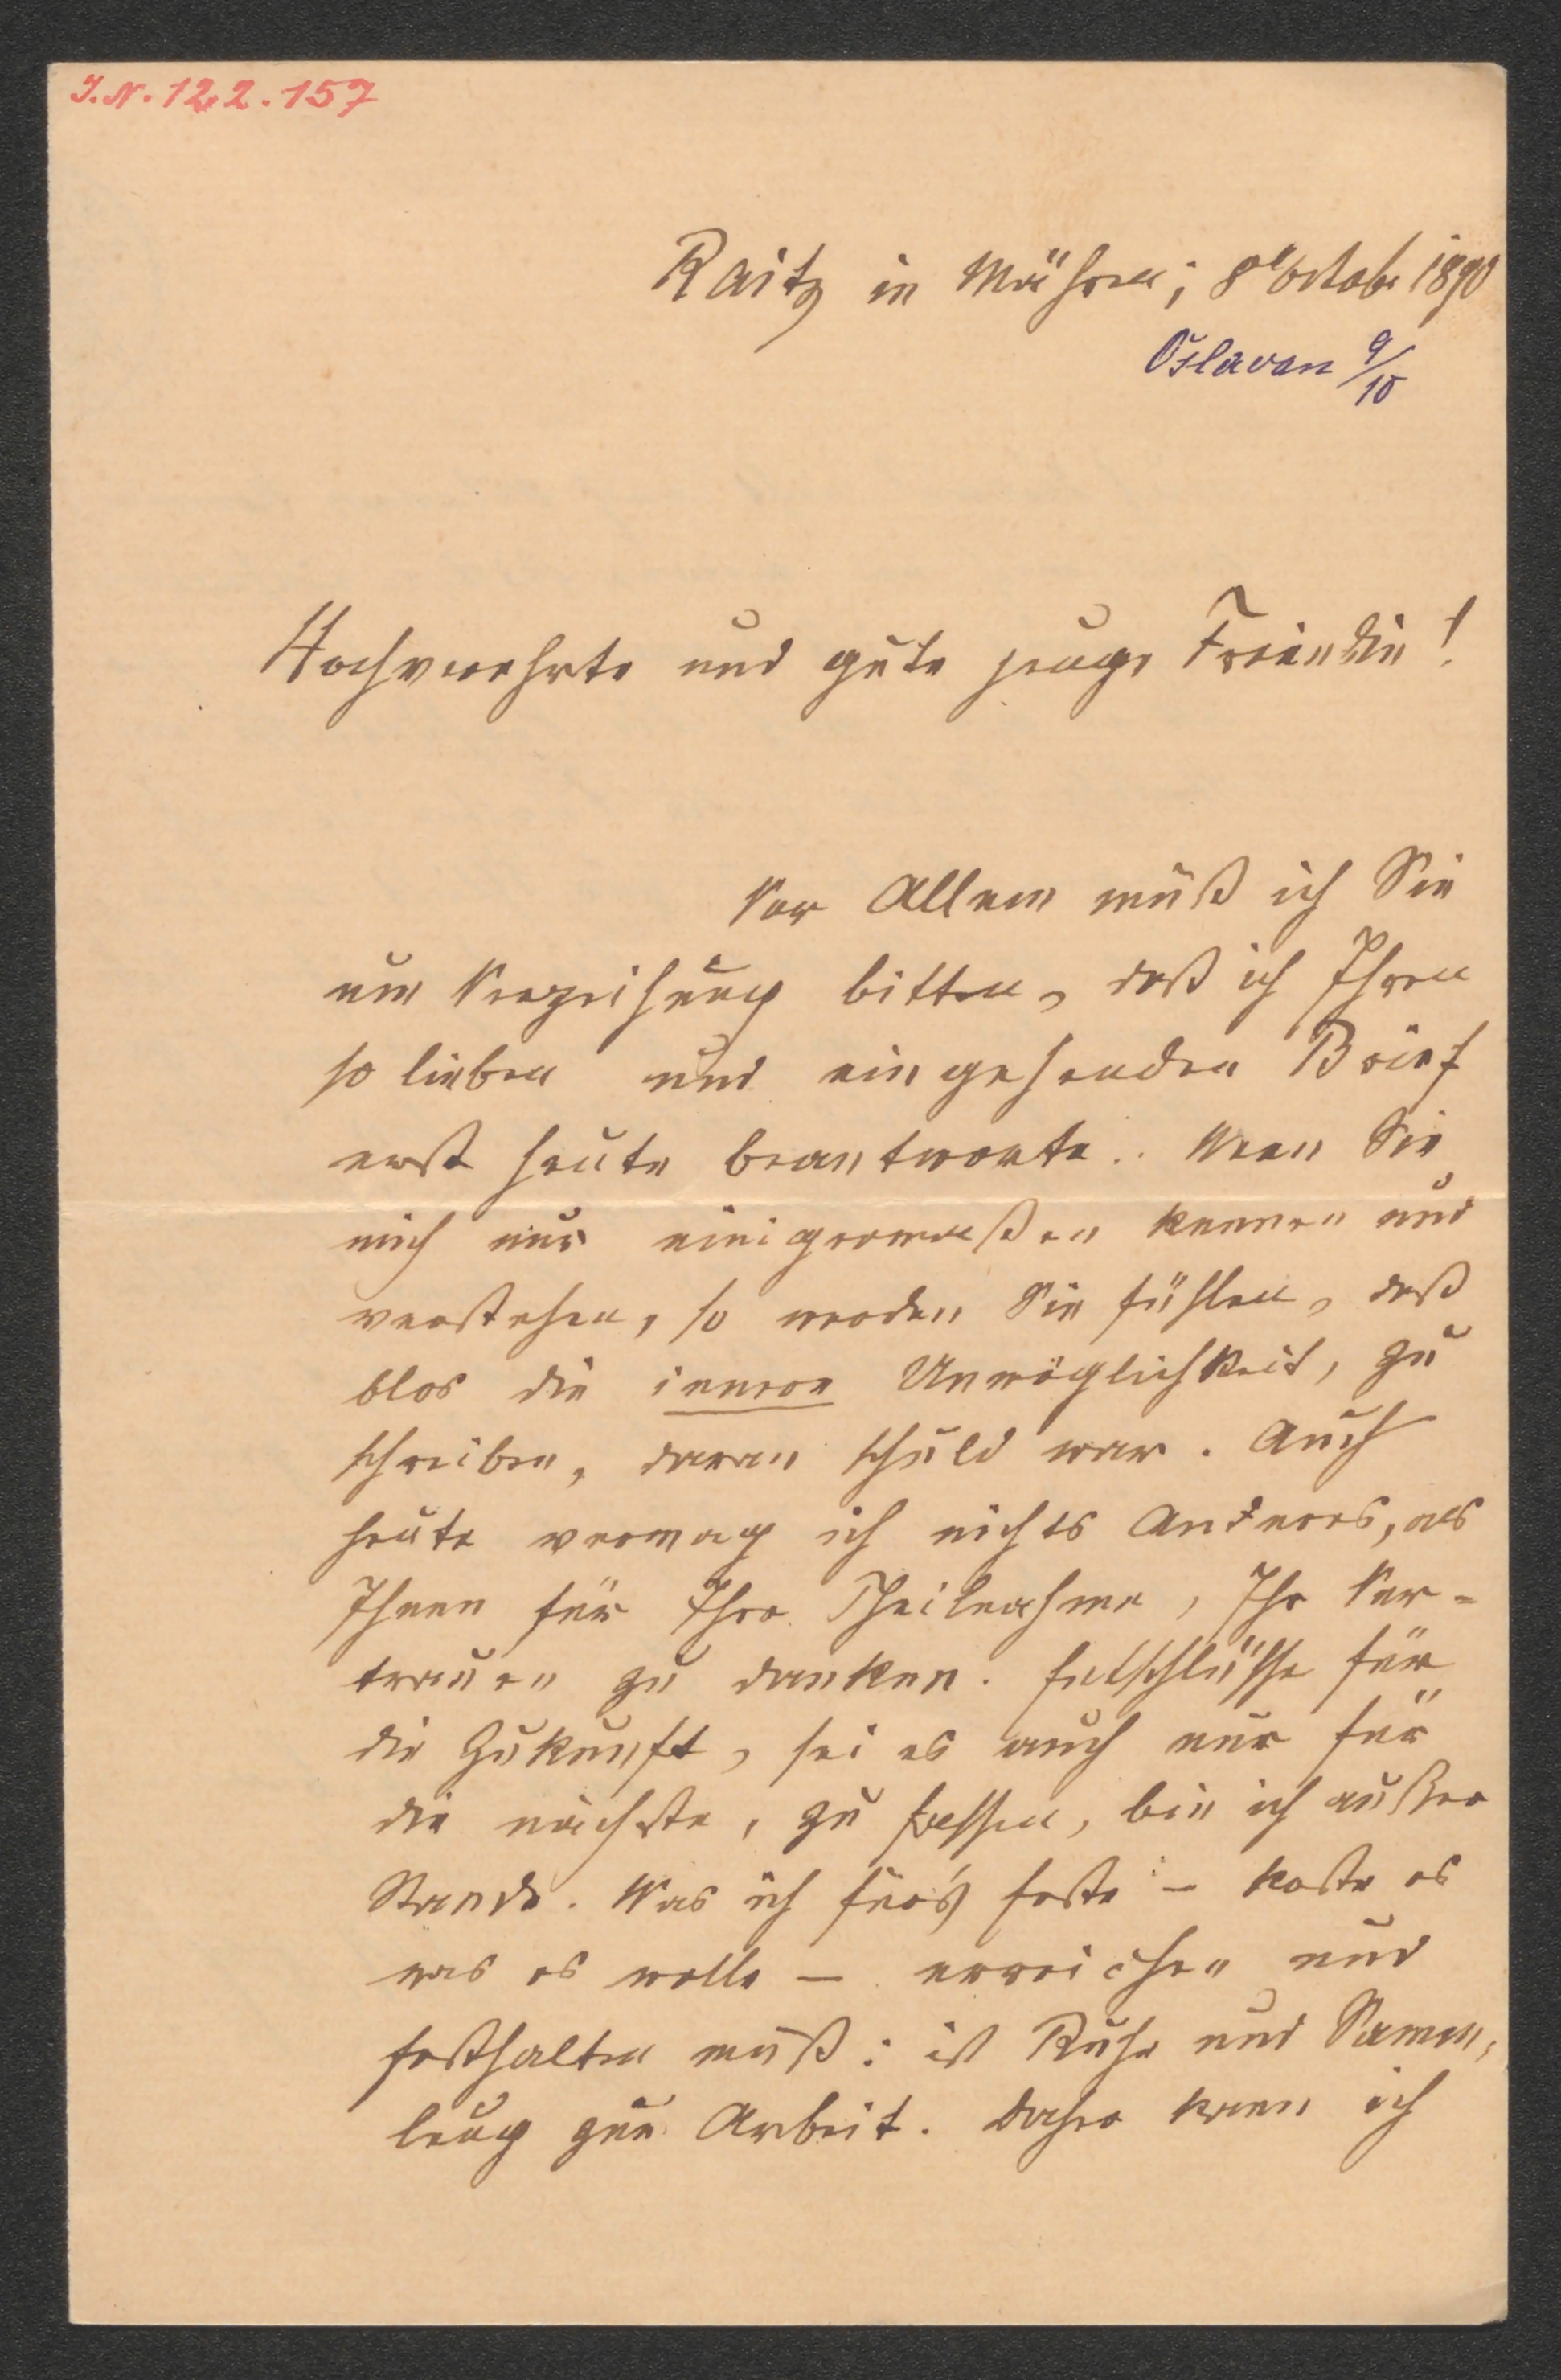 I.N. 122.157
Raitz in Mähren; 8t October 1890
Oslavan 9/10
Hochverehrte und gute junge Freundin!
Vor Allem muß ich Sie
um Verzeihung bitten, daß ich Ihren
so lieben und eingehenden Brief
erst heute beantworte. Wenn Sie
mich nur einigermaßen kennen und
verstehen, so werden Sie fühlen, daß
blos die innere Unmöglichkeit, zu
schreiben, daran schuld war. Auch
heute vermag ich nichts Anderes, als
Ihnen für Ihre Theilnahme, Ihr Ver-
trauen zu danken. Entschlüsse für
die Zukunft, sei es auch nur für
die nächste, zu fassen, bin ich außer
Stande. Was ich fürs Erste – koste es
was es wolle – erreichen und
festhalten muß: ist Ruhe und Samm-
lung zur Arbeit. Daher kann ich